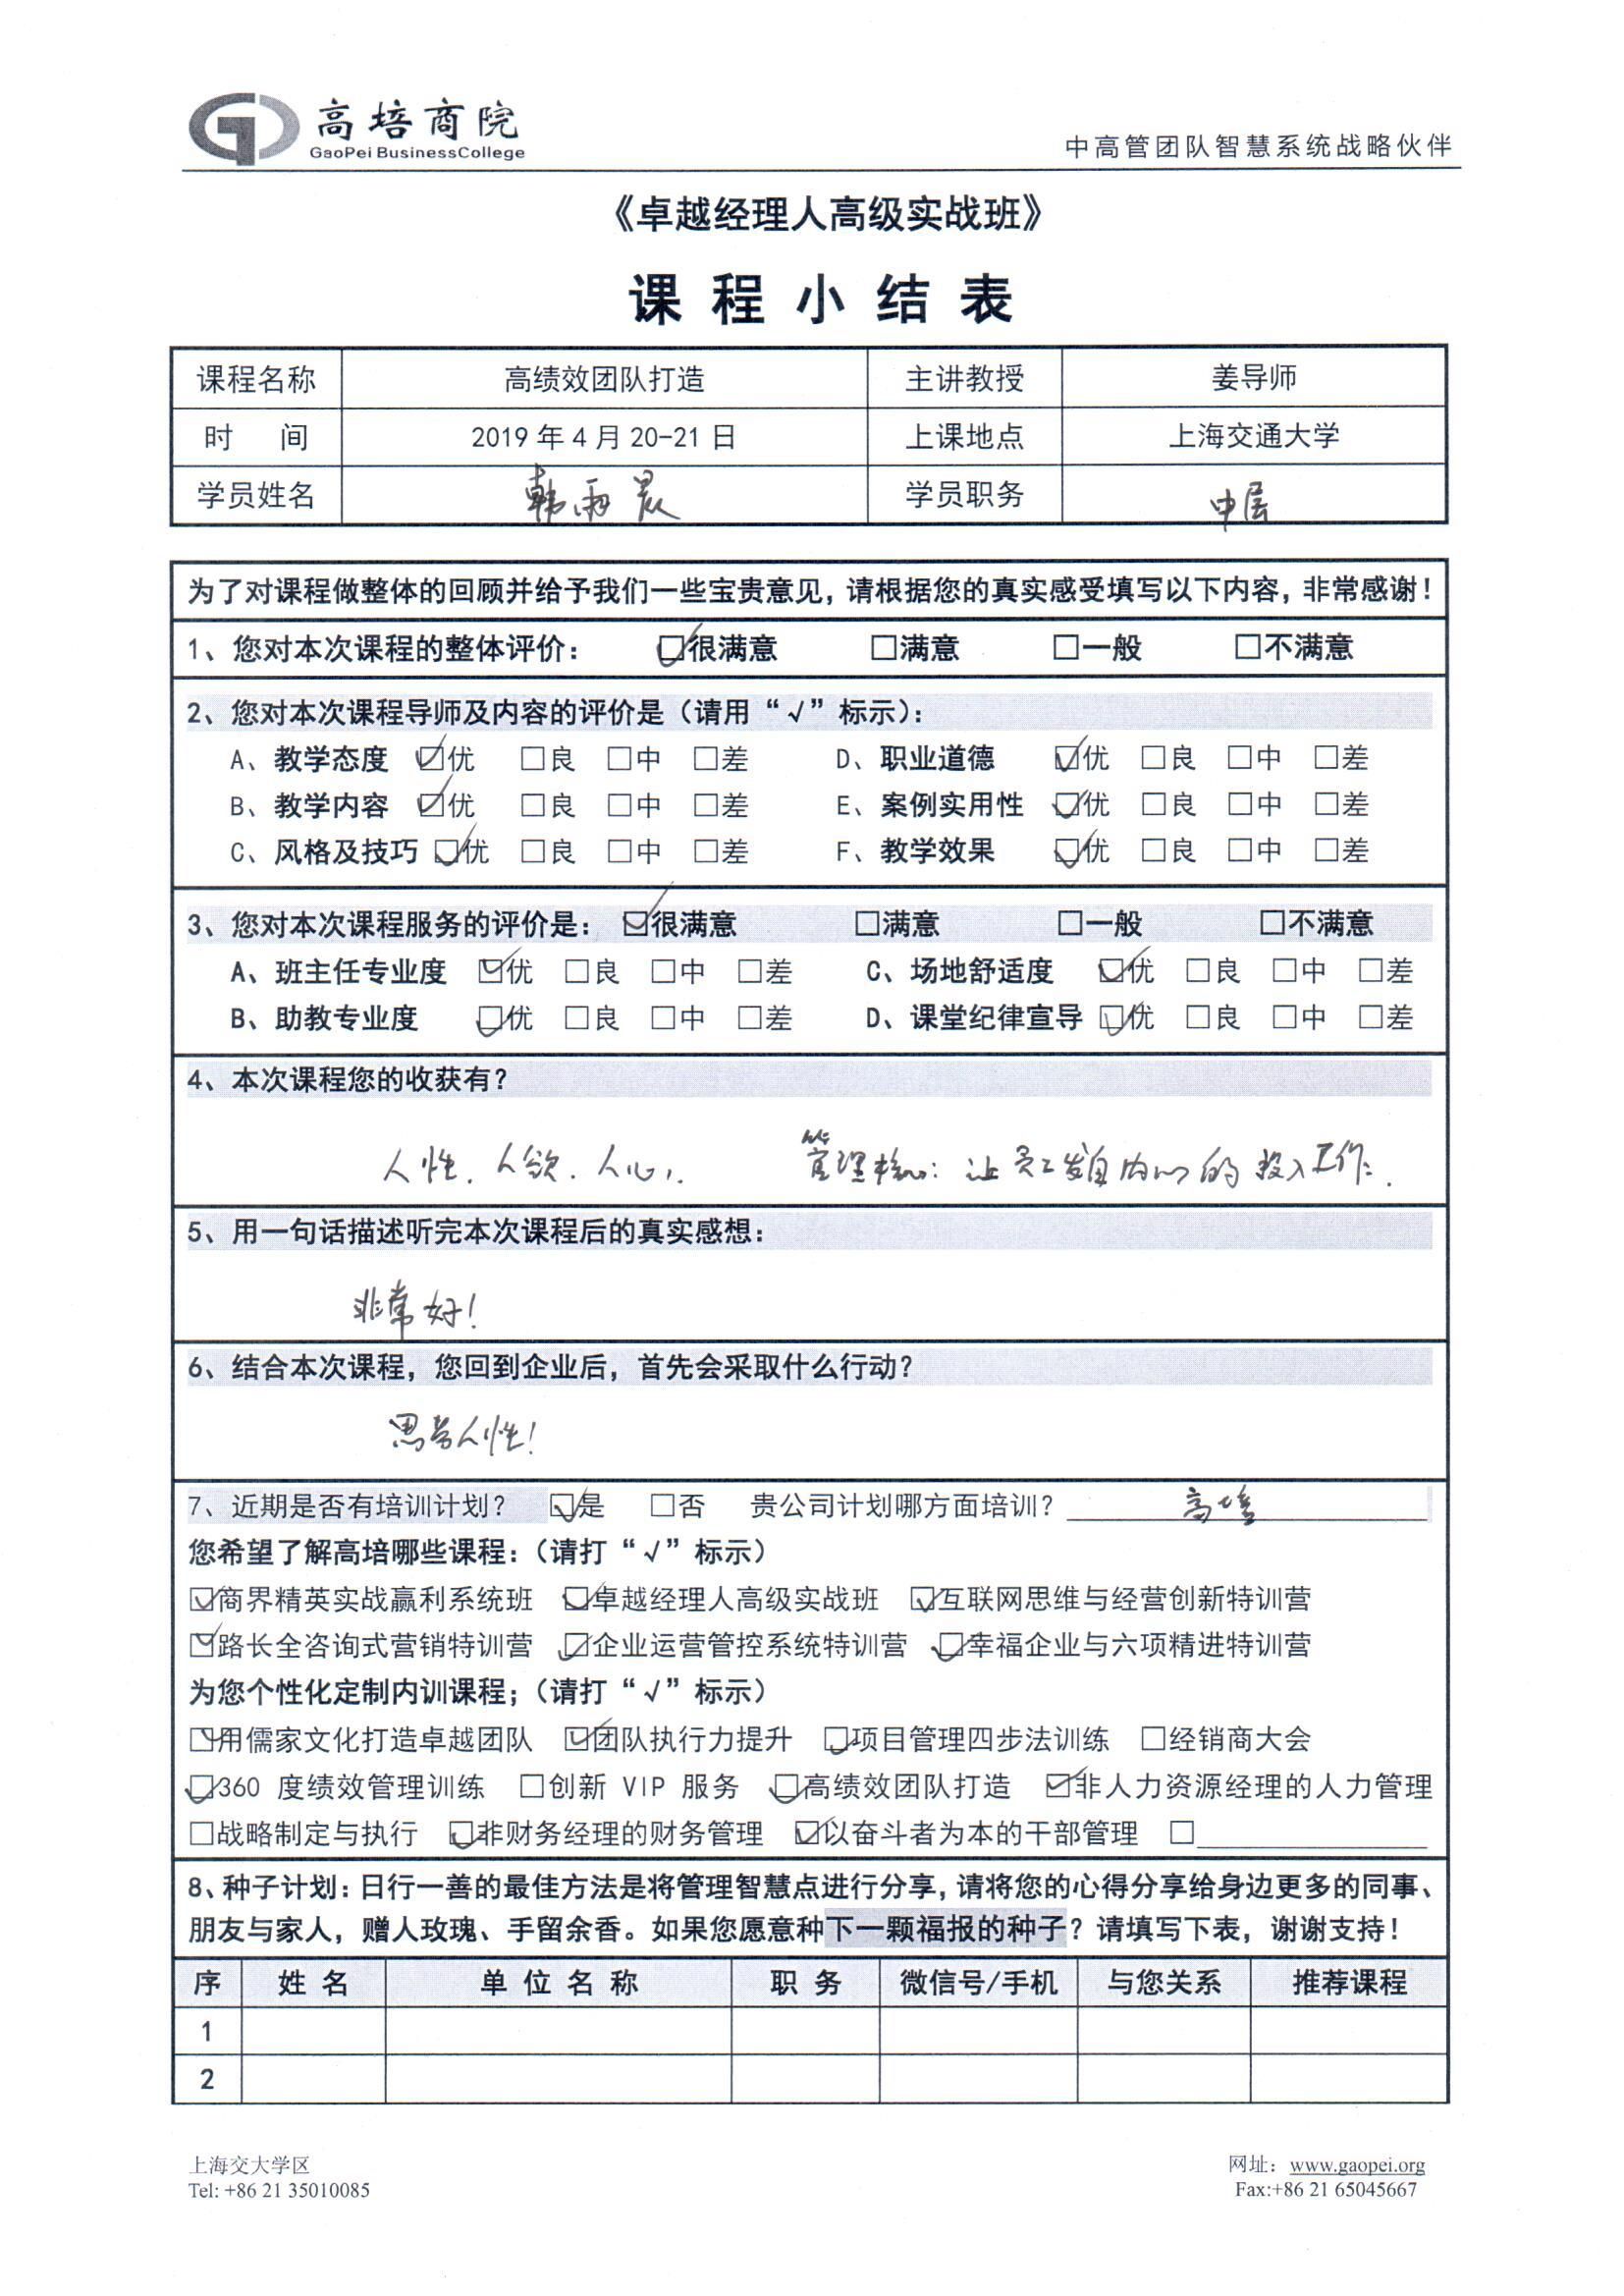 高培商院
GaoPei BusinessCollege
中高管团队智慧系统战略伙伴
《卓越经理人高级实战班》
课程小结表
课程名称 高绩效团队打造 主讲教授 姜导师
时 间 2019年4月20-21日 上课地点 上海交通大学
学员姓名 韩雨晨 学员职务 中层
为了对课程做整体的回顾并给予我们一些宝贵意见，请根据您的真实感受填写以下内容，非常感谢！
1、您对本次课程的整体评价： ☑很满意 □满意 □一般 □不满意
2、您对本次课程导师及内容的评价是（请用“√”标示）：
A、教学态度 ☑优 □良 □中 □差 D、职业道德 ☑优 □良 □中 □差
B、教学内容 ☑优 □良 □中 □差 E、案例实用性 ☑优 □良 □中 □差
C、风格及技巧 ☑优 □良 □中 □差 F、教学效果 ☑优 □良 □中 □差
3、您对本次课程服务的评价是： ☑很满意 □满意 □一般 □不满意
A、班主任专业度 ☑优 □良 □中 □差 C、场地舒适度 ☑优 □良 □中 □差
B、助教专业度 ☑优 □良 □中 □差 D、课堂纪律宣导 ☑优 □良 □中 □差
4、本次课程您的收获有？
人性．人欲．人心． 管理核心：让员工发自内心的投入工作．
5、用一句话描述听完本次课程后的真实感想：
非常好！
6、结合本次课程，您回到企业后，首先会采取什么行动？
思考人性！
7、近期是否有培训计划？ ☑是 □否 贵公司计划哪方面培训？ 高培
您希望了解高培哪些课程：（请打“√”标示）
☑商界精英实战赢利系统班 ☑卓越经理人高级实战班 ☑互联网思维与经营创新特训营
☑路长全咨询式营销特训营 ☑企业运营管控系统特训营 ☑幸福企业与六项精进特训营
为您个性化定制内训课程；（请打“√”标示）
☑用儒家文化打造卓越团队 ☑团队执行力提升 ☑项目管理四步法训练 □经销商大会
☑360 度绩效管理训练 □创新 VIP 服务 ☑高绩效团队打造 ☑非人力资源经理的人力管理
□战略制定与执行 ☑非财务经理的财务管理 ☑以奋斗者为本的干部管理 □
8、种子计划：日行一善的最佳方法是将管理智慧点进行分享，请将您的心得分享给身边更多的同事、
朋友与家人，赠人玫瑰、手留余香。如果您愿意种下一颗福报的种子？请填写下表，谢谢支持！
序 姓名 单位名称 职务 微信号/手机 与您关系 推荐课程
1
2
上海交大学区 网址：www.gaopei.org
Tel: +86 21 35010085 Fax:+86 21 65045667